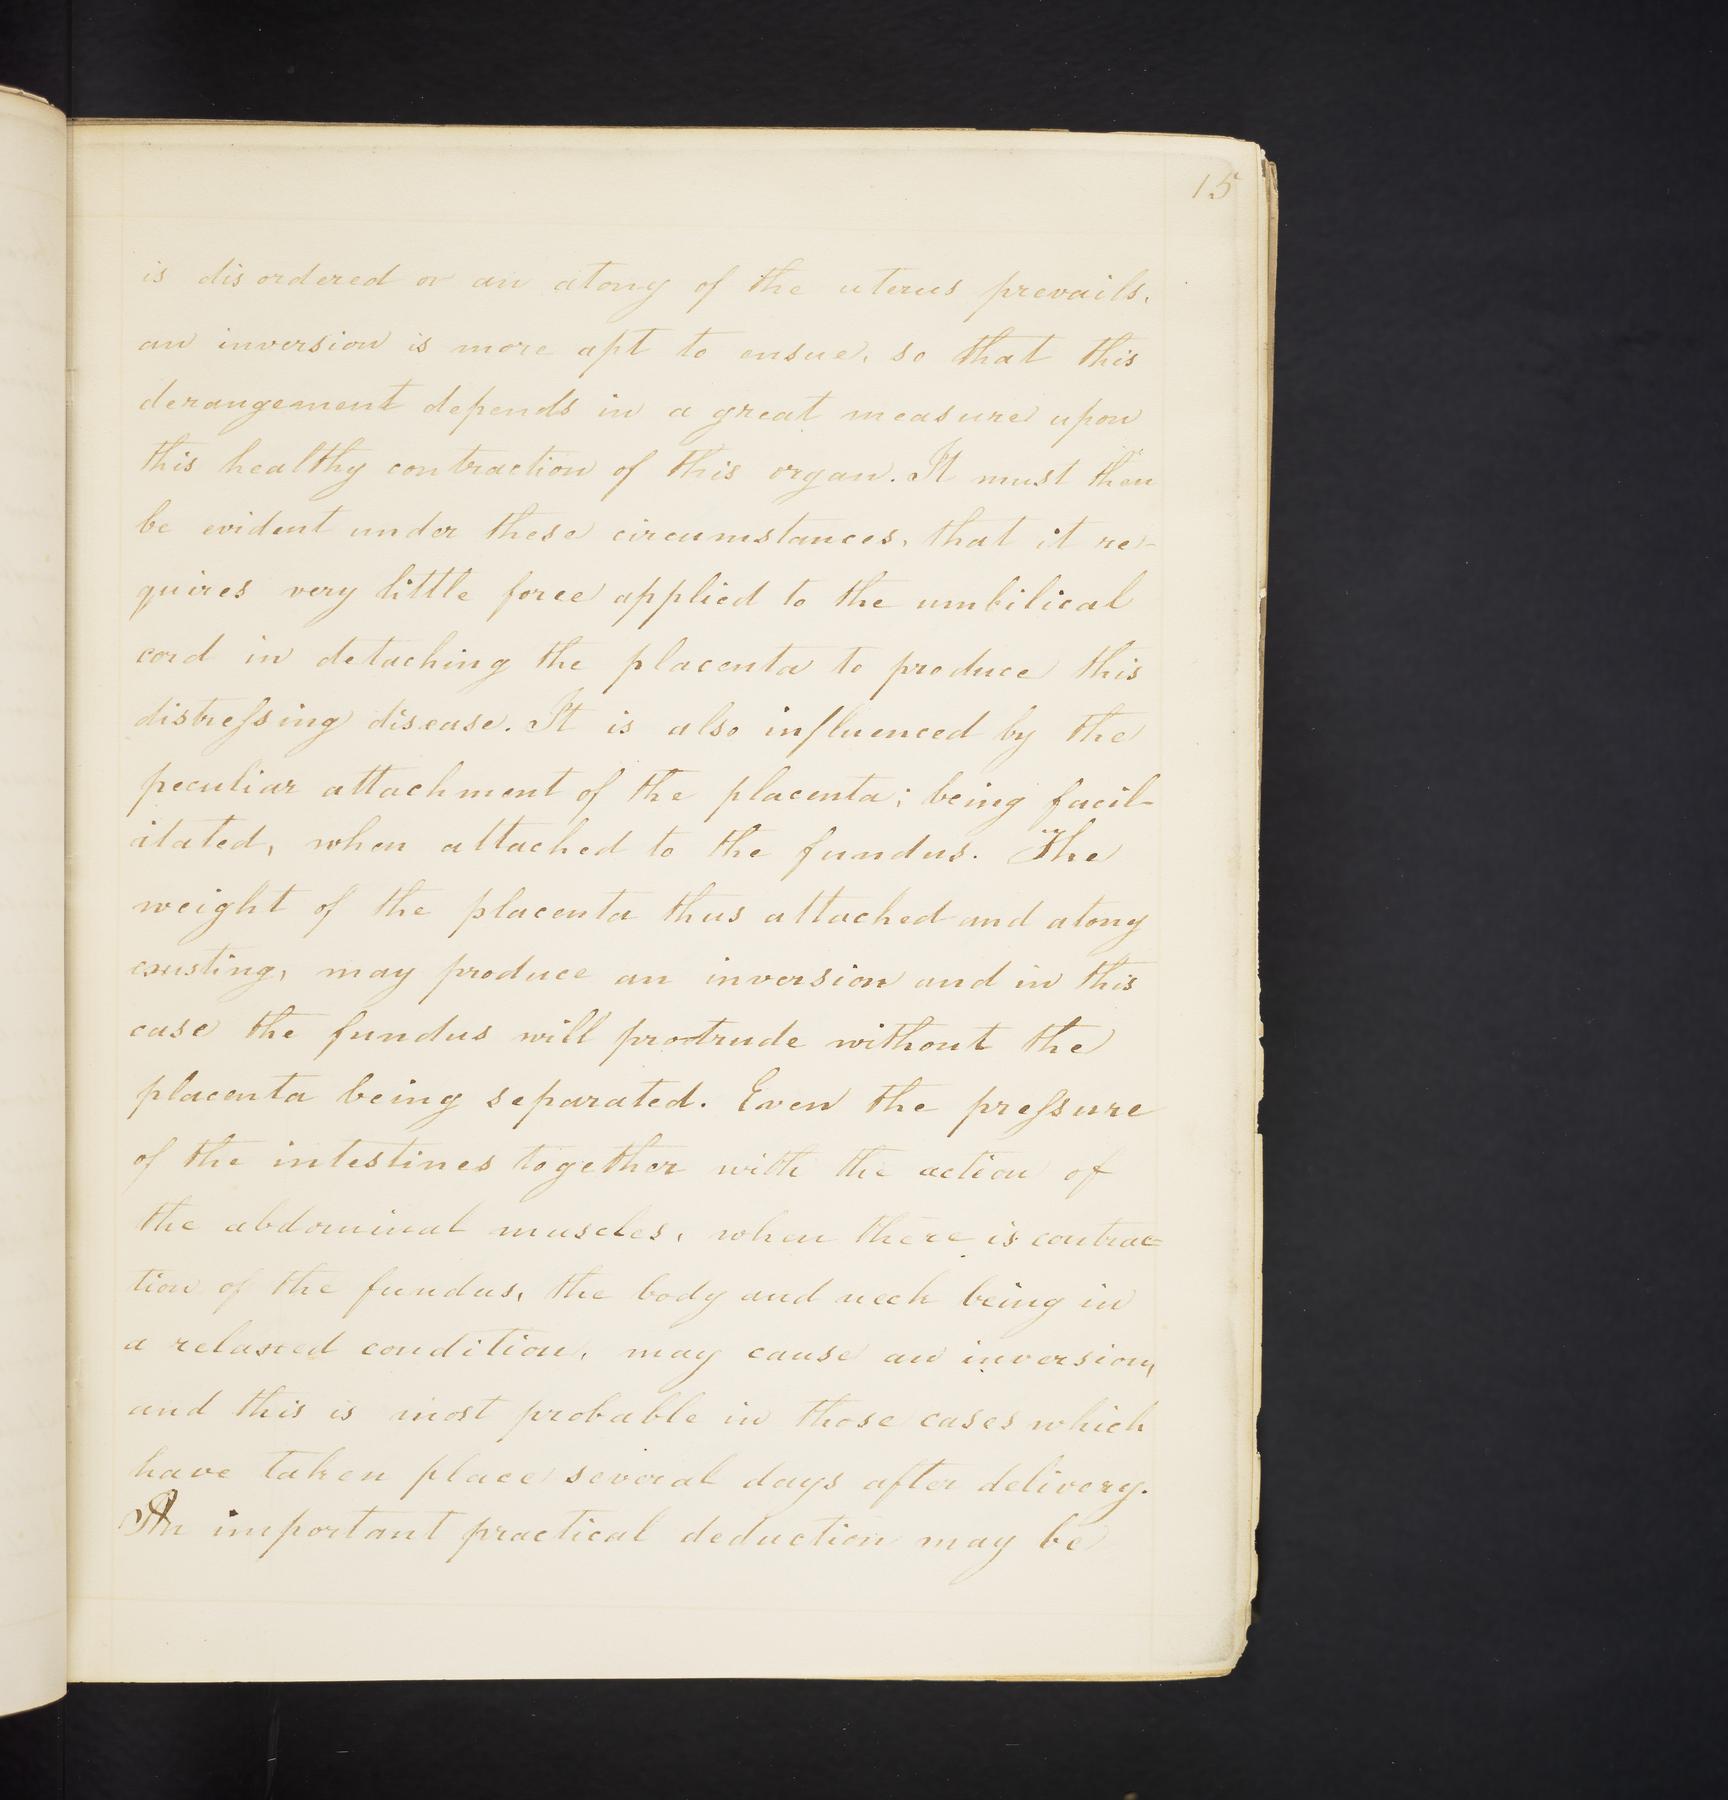 15
is disordered or an atony of the uterus prevails,
an inversion is more apt to ensue, so that this
derangement depends in a great measure upon
this healthy contraction of this organ. It must then
be evident under these circumstances, that it re-
quires very little force applied to the umbilical
cord in detaching the placenta to produce this
distreſsing disease. It is also influenced by the
peculiar attachment of the placenta; being facil-
itated, when attached to the fundus. The
weight of the placenta thus attached and atony
existing, may produce an inversion and in this
case the fundus will protrude without the
placenta being separated. Even the preſsure
of the intestines together with the action of
the abdominal muscles, when there is contrac=
tion of the fundus, the body and neck being in
a relaxed condition, may cause an inversion,
and this is most probable in those cases which
have taken place several days after delivery.
An important practical deduction may be